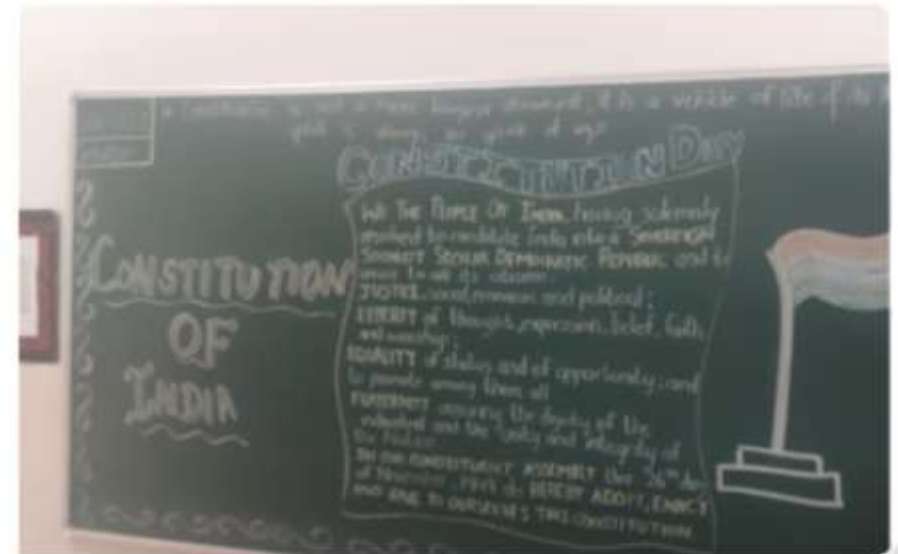 is not a mere lawyers document, it is a vehicle of life
spirit is always the spirit of age
CONSTITUTION DAY
CONSTITUTION
OF
INDIA
WE THE PEOPLE OF INDIA having solemnly
resolved to constitute India into a SOVEREIGN
SOCIALIST SECULAR DEMOCRATIC REPUBLIC and to
secure to all its citizens
JUSTICE, social, economic and political;
LIBERTY of thought, expression, belief, faith
and worship;
EQUALITY of status and of opportunity; and
to promote among them all
FRATERNITY assuring the dignity of the
individual and the Unity and Integrity of
the Nation
IN OUR CONSTITUENT ASSEMBLY this 26th day
of November, 1949 do HEREBY ADOPT, ENACT
AND GIVE TO OURSELVES THIS CONSTITUTION